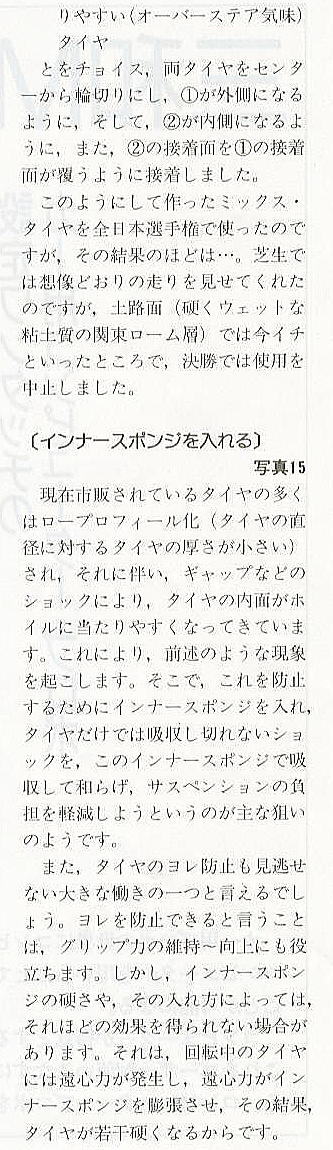 りやすい(オーバーステア気味)
タイヤ
とをチョイス，両タイヤをセンタ
ーから輪切りにし，①が外側になる
ように，そして，②が内側になるよ
うに，また，②の接着面を①の接着
面が覆うように接着しました。
このようにして作ったミックス・
タイヤを全日本選手権で使ったので
すが，その結果のほどは…。芝生で
は想像どおりの走りを見せてくれた
のですが，土路面（硬くウェットな
粘土質の関東ローム層）では今イチ
といったところで，決勝では使用を
中止しました。
〔インナースポンジを入れる〕
写真15
現在市販されているタイヤの多く
はロープロフィール化（タイヤの直
径に対するタイヤの厚さが小さい）
され，それに伴い，ギャップなどの
ショックにより，タイヤの内面がホ
イルに当たりやすくなってきていま
す。これにより，前述のような現象
を起こします。そこで，これを防止
するためにインナースポンジを入れ，
タイヤだけでは吸収し切れないショ
ックを，このインナースポンジで吸
収して和らげ，サスペンションの負
担を軽減しようというのが主な狙い
のようです。
また，タイヤのヨレ防止も見逃せ
ない大きな働きの一つと言えるでし
ょう。ヨレを防止できると言うこと
は，グリップ力の維持～向上にも役
立ちます。しかし，インナースポン
ジの硬さや，その入れ方によっては，
それほどの効果を得られない場合が
あります。それは，回転中のタイヤ
には遠心力が発生し，遠心力がイン
ナースポンジを膨張させ，その結果，
タイヤが若干硬くなるからです。